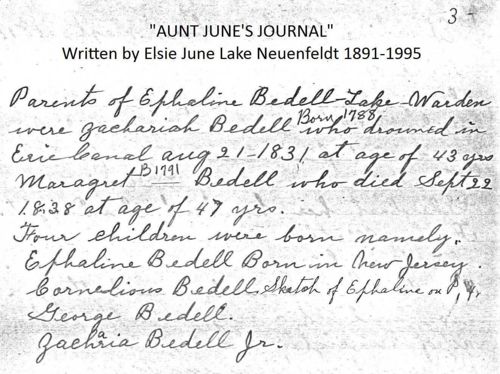 3 -
"AUNT JUNE'S JOURNAL"
Written by Elsie June Lake Neuenfeldt 1891-1995
Parents of Ephaline Bedell-Lake-Warden
were Zachariah Bedell Born 1788 who drowned in
Erie Canal aug 21-1831 at age of 43 yrs
Maragret B 1791 Bedell who died Sept 22
1838 at age of 47 yrs.
Four children were born namely.
Ephaline Bedell Born in New Jersey.
Cornelious Bedell. Sketch of Ephaline on P, 4.
George Bedell.
Zacharia Bedell Jr.